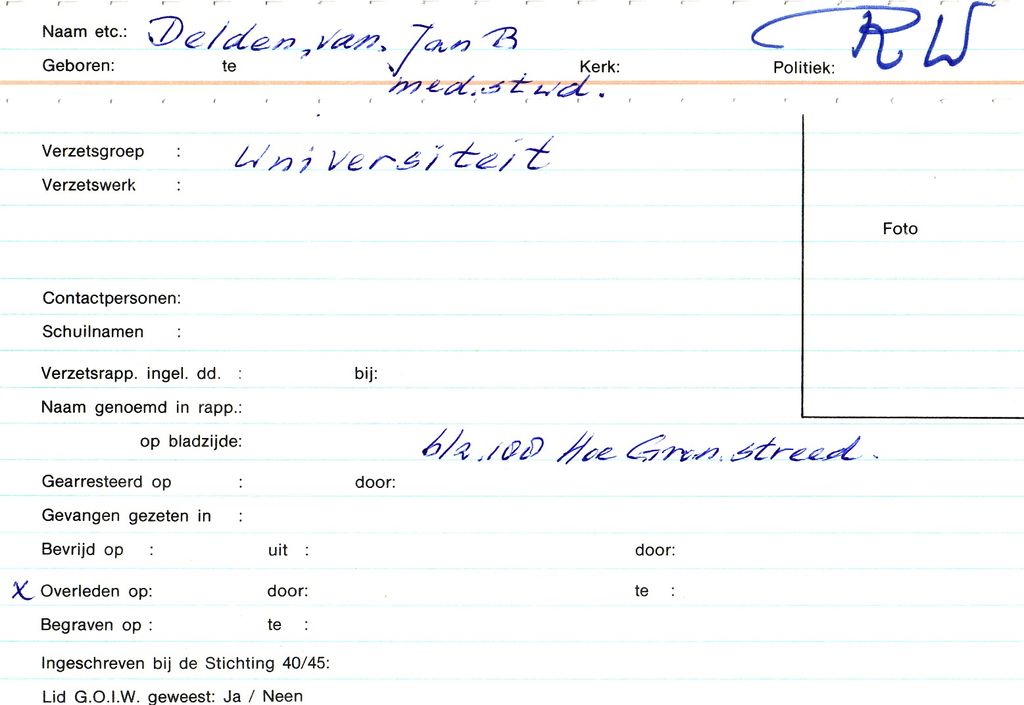 Naam etc.: Delden, van. Jan B RW
Geboren: te Kerk: Politiek:
med. stud.
Verzetsgroep : Universiteit
Verzetswerk :
Foto
Contactpersonen:
Schuilnamen :
Verzetsrapp. ingel. dd. : bij:
Naam genoemd in rapp.:
op bladzijde: blz. 100 Hoe Gron. streed.
Gearresteerd op : door:
Gevangen gezeten in :
Bevrijd op : uit : door:
X Overleden op: door: te :
Begraven op : te :
Ingeschreven bij de Stichting 40/45:
Lid G.O.I.W. geweest: Ja / Neen